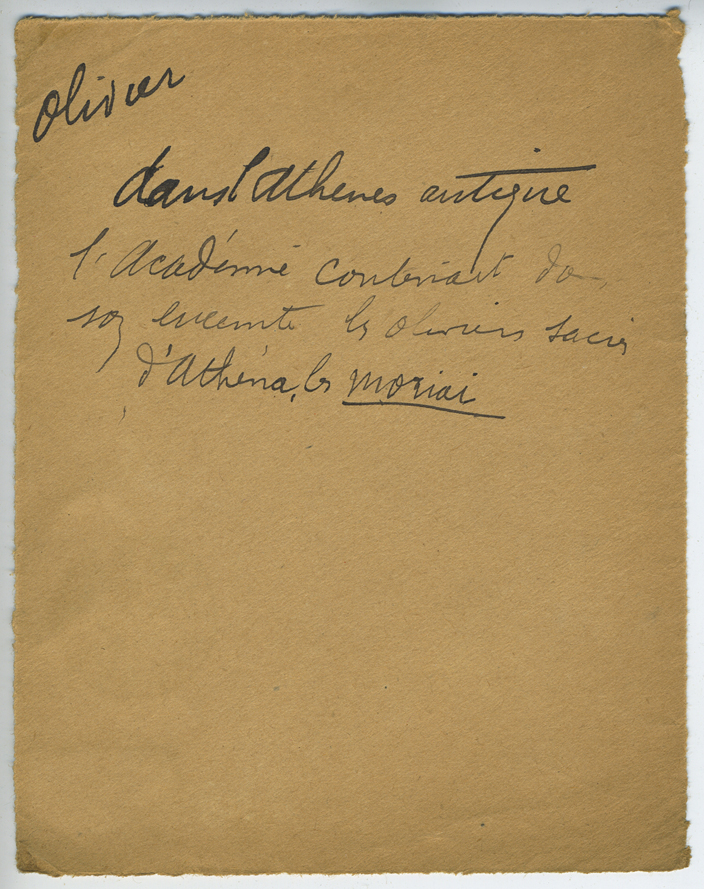 olivier
dans l'Athènes antique
l'Académie contenait dans
son enceinte les oliviers sacrés
d'Athéna, les moriai